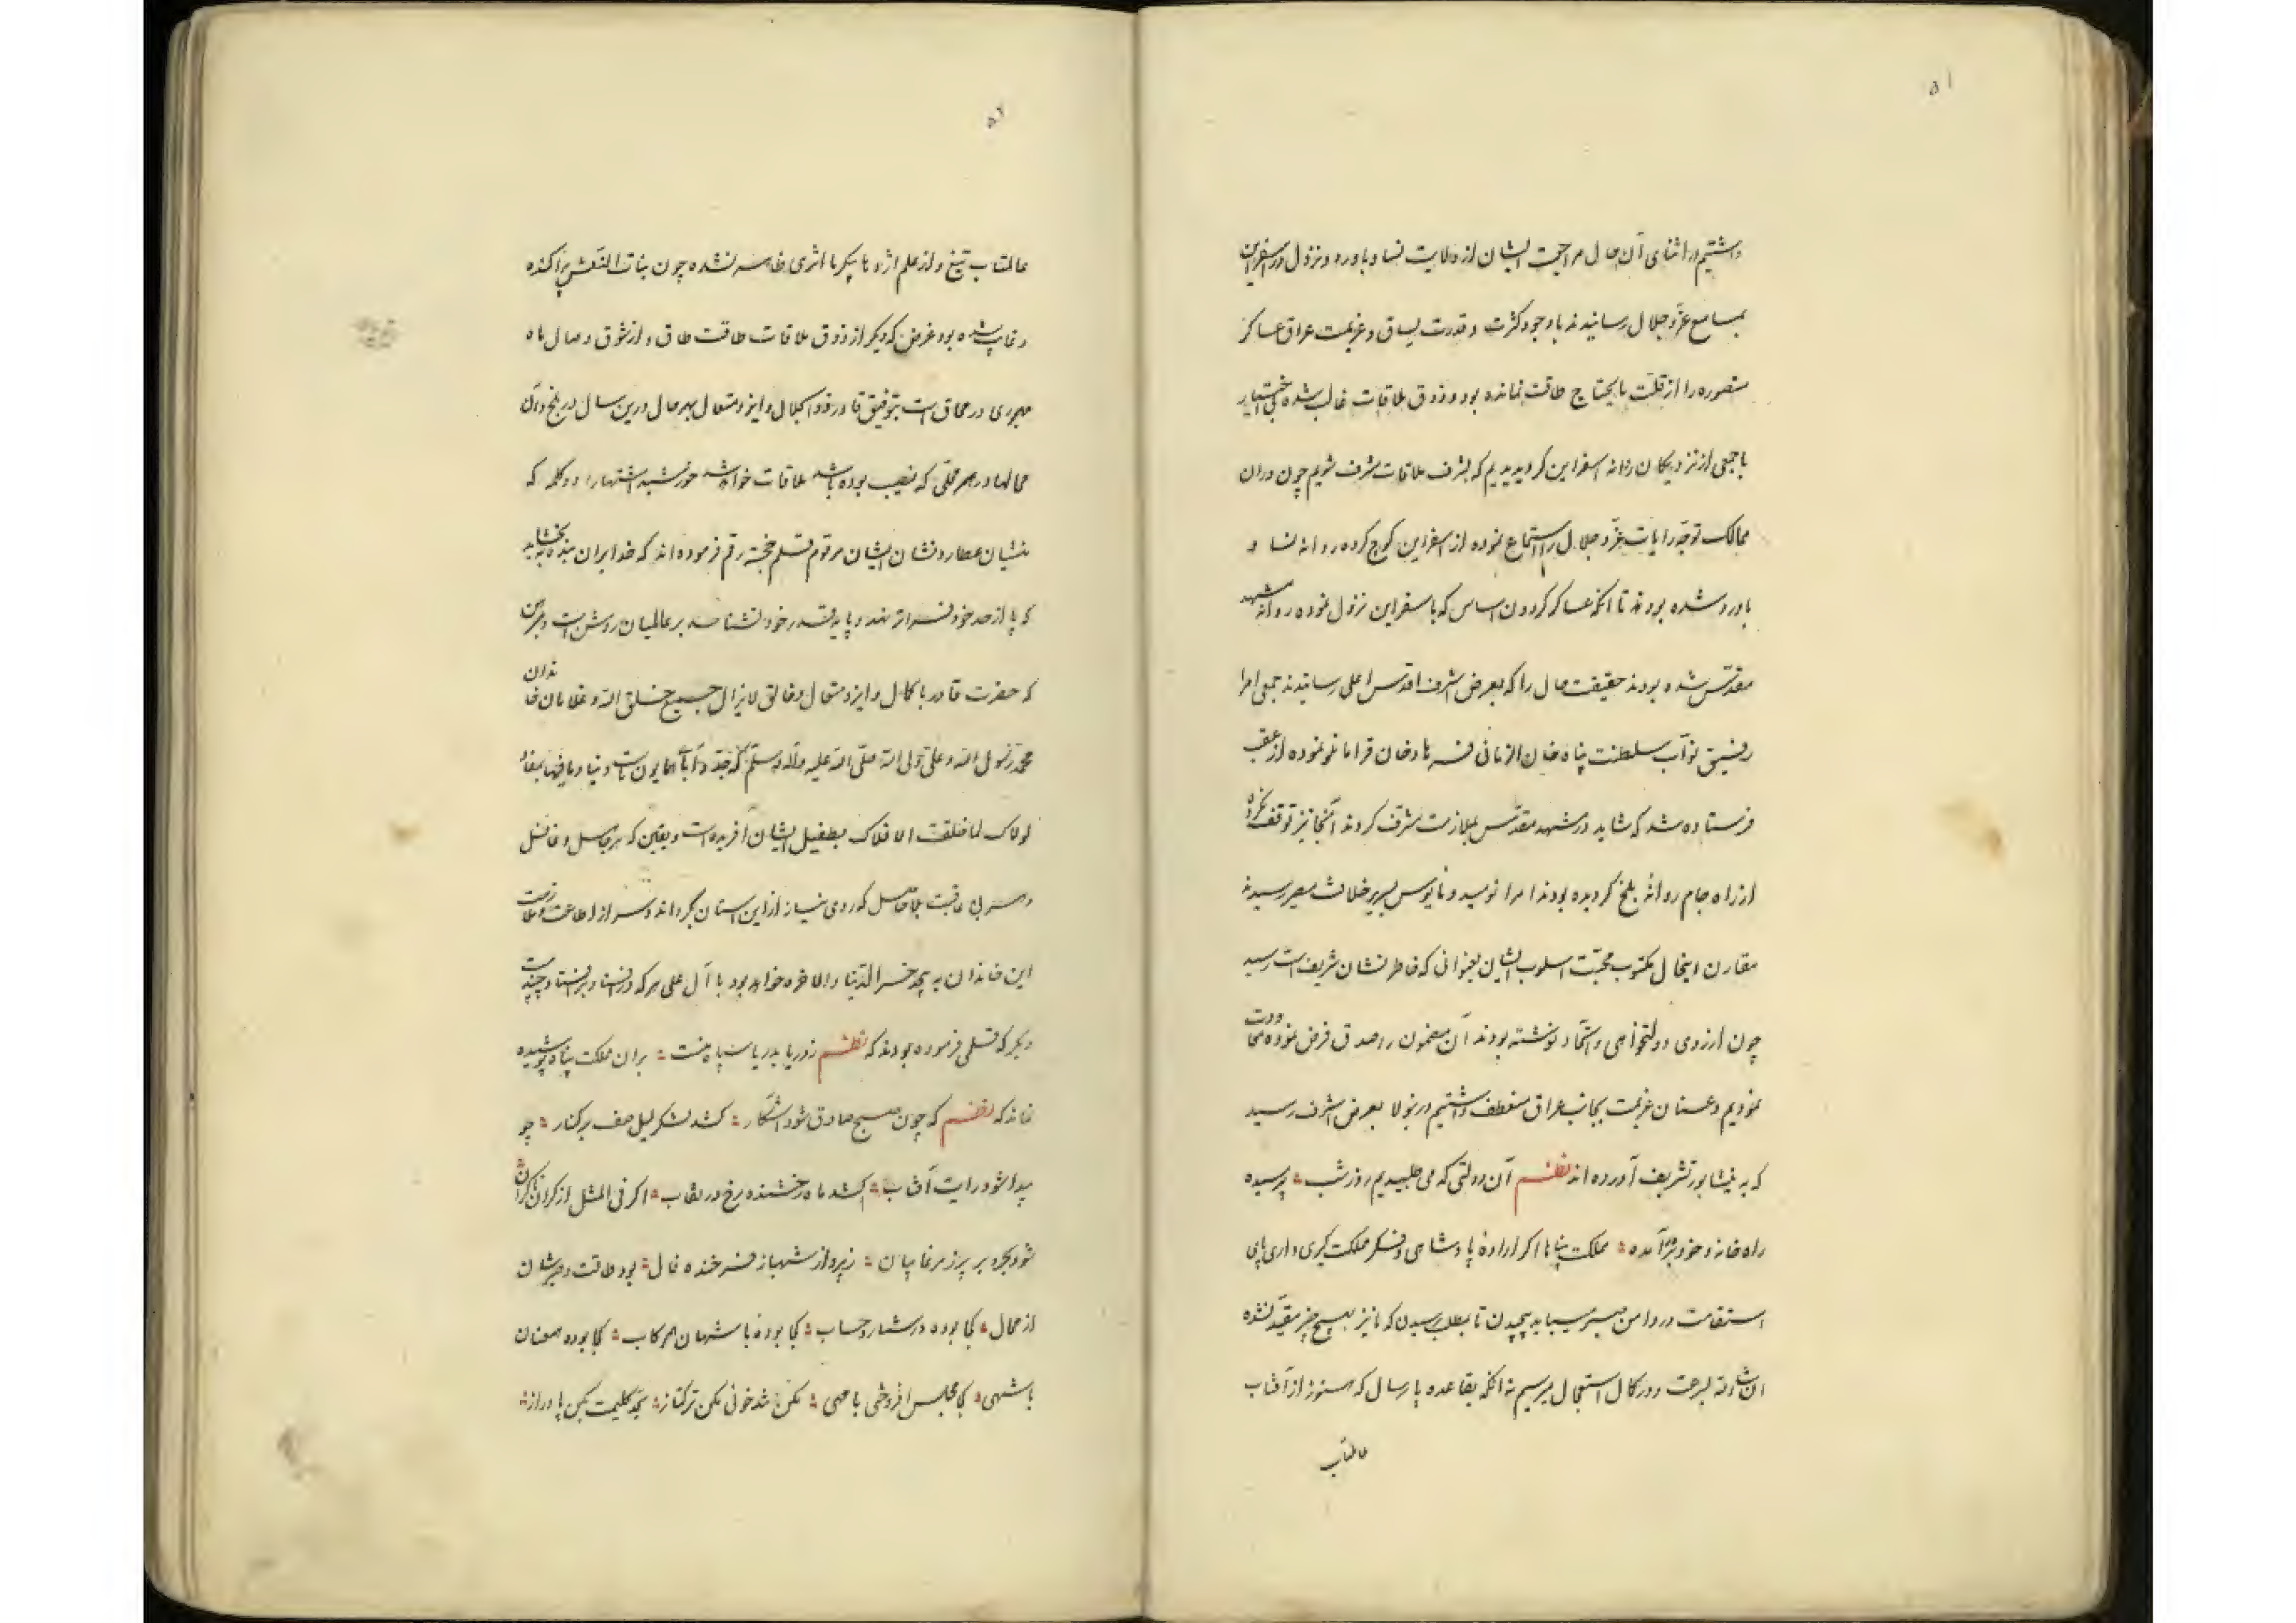 ۵۱
داشتیم در اثنای آن حال مراجعت ایشان از ولایت نسا و باورد و نزول در اسفراین
بمسامع عزّ و جلال رسانیدند با وجود کثرت و قدرت یساق و عزیمت عراق عساکر
منصوره را از قلّت مایحتاج طاقت نمانده بود و ذوق ملاقات غالب شده
با جمعی از نزدیکان روانه اسفراین کردیدیم که بشرف ملاقات مشرف شویم چون در آن
ممالک توجّه رایات عزّ و جلال را استماع نموده از اسفراین کوچ کرده روانه نسا و
باورد شده بودند تا آنکه عساکر کردون اساس که باسفراین نزول نموده روانه مشهد
مقدّس شده بودند حقیقت حال را که بعرض اشرف اقدس اعلی رسانیدند جمعی امرا
رفیق نوّاب سلطنت پناه خان الزمانی فرهادخان قرامانلو نموده از عقب
فرستاده شد که شاید در مشهد مقدّس بملازمت مشرف کردند آنجا نیز توقف نکرده
از راه جام روانهٔ بلخ کردیده بودند امرا نومید و مأیوس بسریر خلافت مصیر رسیدند
مقارن اینحال مکتوب محبّت اسلوب ایشان بعنوانی که خاطر نشان شریف است رسید
چون آرزوی دولتخواهی و اتّحاد نوشته بودند آن مضمون را صدق فرض نموده معاودت
نمودیم و عنان عزیمت بجانب عراق منعطف داشتیم درینولا بعرض اشرف رسید
که به نیشابور تشریف آورده اند نظم آن دولتی که می طلبیدیم روز و شب پرسیده
راه خانه و خود بر در آمده مملکت پناها اکر ارادهٔ پادشاهی و فکر مملکت کیری داری پای
استقامت در دامن صبر میباید پیچیدن تا بمطلب رسیدن که ما نیز بهیچ چیز مقیّد نشده
ان شاء الله بسرعت و در کمال استعجال میرسیم نه آنکه بقاعده پارسال که هنوز از آفتاب
عالمتاب
۵۲
عالمتاب تیغ و از علم اژدها پیکر ما اثری ظاهر نشده چون بنات النعش پراکنده
و غایب شده بود غرض که دیکر از ذوق ملاقات طاقت طاق و از شوق وصال ماه
مهجوری در محاق است بتوفیق قادر ذو الجلال و ایزد متعال بهر حال درین سال در بلخ و آن
محالها در هر محلّی که نصیب بوده باشد ملاقات خواهد شد خورشید اشتهارا دو کلمه که
منشیان عطارد نشان ایشان مرقوم قلم خجسته رقم فرموده اند که خدا بر آن بنده بخشاید
که پا از حد خود فراتر ننهد و پایه قدر خود بشناسد بر عالمیان روشن است و مبرهن
که حضرت قادر با کمال و ایزد متعال و خالق لایزال جمیع خلق الله و غلامان خاندان
محمّد رسول الله و علی ولی الله صلّی الله علیه و آله و سلّم که جدّ و آبای همایون ماست دنیا و مافیها بمفاد
لولاک لما خلقت الافلاک بطفیل ایشان آفریده است و یقین که هر جاهل و غافل
و هر بی عاقبت بلا حاصل که روی نیاز از این آستان بکرداند و سر از اطاعت و ملازمت
این خاندان به پیچد خسر الدّنیا و الآخره خواهد بود با آل علی هر که در افتاد بر افتاد
دیکر که قلمی فرموده بودند که نظم ز دریا بدریا سپاه منست بر آن مملکت پناه پوشیده
نماند که نظم که چون صبح صادق شود آشکار کشد لشکر لیل صف بر کنار چو
پیدا شود رایت آفتاب کشد ماه رخشنده رخ در نقاب اکر فی المثل از کران تا کران
شود بحر و بر پر ز مرغابیان ز پرواز شهباز فرخنده فال بود طاقت و صبرشان
از محال کجا بوده در شمار و حساب کجا بودهٔ با شهان هم رکاب کجا بوده همعنان
با شهی کجا مجلس افروختی با مهی مکن تندخوئی مکن ترکتاز بقدّ کلیمت بکن پا دراز